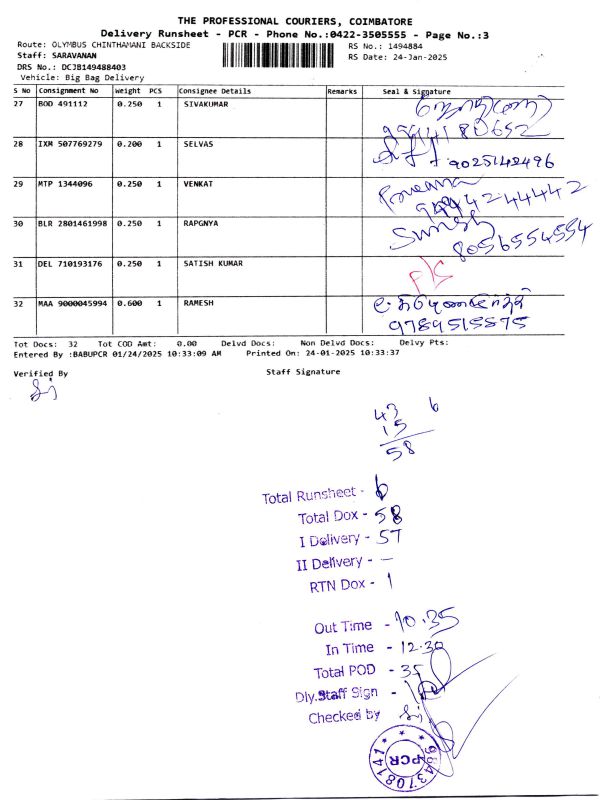 THE PROFESSIONAL COURIERS, COIMBATORE
Delivery Runsheet - PCR - Phone No.:0422-3505555 - Page No.:3
Route: OLYMBUS CHINTHAMANI BACKSIDE RS No.: 1494884
Staff: SARAVANAN RS Date: 24-Jan-2025
DRS No.: DCJB149488403
Vehicle: Big Bag Delivery
S No Consignment No Weight PCS Consignee Details Remarks Seal & Signature
27 BOD 491112 0.250 1 SIVAKUMAR
28 IXM 507769279 0.200 1 SELVAS 9025142496
29 MTP 1344096 0.250 1 VENKAT
30 BLR 2801461998 0.250 1 RAPGNYA Suresh 8056554554
31 DEL 710193176 0.250 1 SATISH KUMAR
32 MAA 9000045994 0.600 1 RAMESH 9789515575
Tot Docs: 32 Tot COD Amt: 0.00 Delvd Docs: Non Delvd Docs: Delvy Pts:
Entered By :BABUPCR 01/24/2025 10:33:09 AM Printed On: 24-01-2025 10:33:37
Verified By Staff Signature
43 6
15
58
Total Runsheet - 6
Total Dox - 58
I Delivery - 57
II Delivery - —
RTN Dox - 1
Out Time - 10.35
In Time - 12.30
Total POD - 35
Dly.Staff Sign -
Checked by
PCR
9843708147